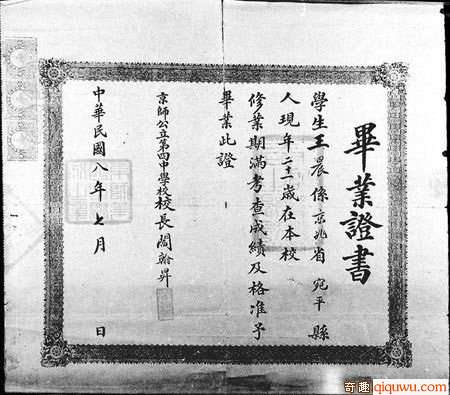 畢業證書
學生王晨係京兆省宛平縣
人現年二十一歲在本校
修業期滿考查成績及格准予
畢業此證
京師公立第四中學校校長閻翰昇
中華民國八年七月 日
奇趣 qiquwu.com